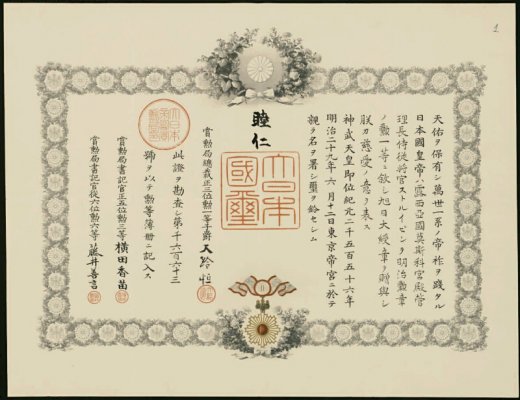 天佑ヲ保有シ萬世一系ノ帝祚ヲ踐タル
日本國皇帝ハ露西亞國莫斯科宮殿管
理長侍從將官ストルイピンヲ明治勲章
ノ勲一等ニ敘シ旭日大綬章ヲ贈與シ
朕カ慈愛ノ意ヲ表ス
神武天皇即位紀元二千五百五十六年
明治二十九年六月十二日東京帝宮ニ於テ
親ラ名ヲ署シ璽ヲ鈐セシム
睦仁
大日本國璽
賞勲局總裁正三位勲一等子爵大給恒
此證ヲ勘查シ第千六百六十三
號ヲ以テ勲等簿冊ニ記入ス
賞勲局書記官正五位勲三等橫田香苗
賞勲局書記官從六位勲六等藤井善言
1